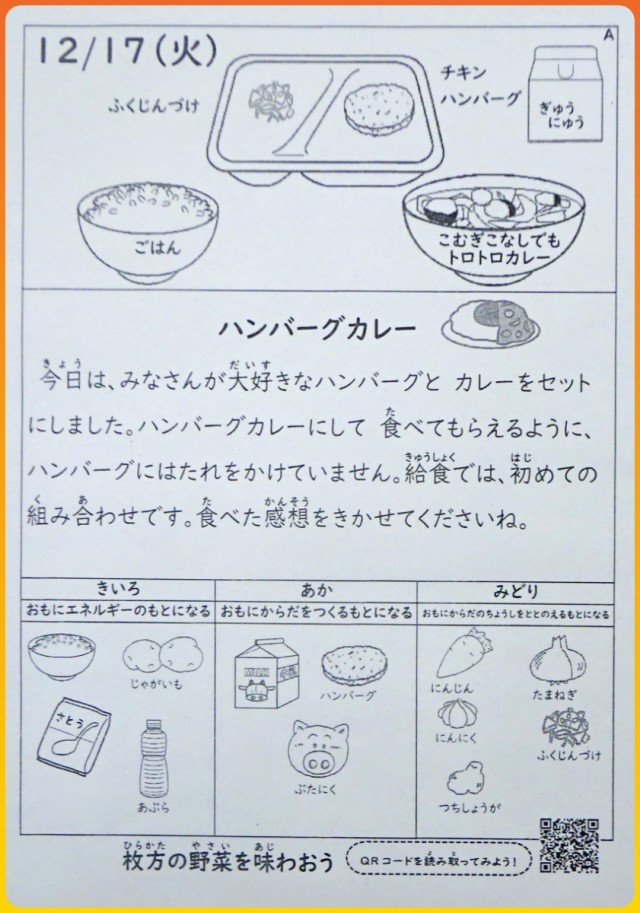 A
12/17(火)
ふくじんづけ
チキン
ハンバーグ
ぎゅう
にゅう
ごはん
こむぎこなしでも
トロトロカレー
ハンバーグカレー
きょう だいす
今日は、みなさんが大好きなハンバーグと カレーをセット
た
にしました。ハンバーグカレーにして 食べてもらえるように、
きゅうしょく はじ
ハンバーグにはたれをかけていません。給食では、初めての
く あ た かんそう
組み合わせです。食べた感想をきかせてくださいね。
きいろ あか みどり
おもにエネルギーのもとになる おもにからだをつくるもとになる おもにからだのちょうしをととのえるもとになる
じゃがいも
さとう
あぶら
MILK
ハンバーグ
ぶたにく
にんじん
たまねぎ
にんにく
ふくじんづけ
つちしょうが
ひらかた やさい あじ
枚方の野菜を味わおう
よ と
QRコードを読み取ってみよう!